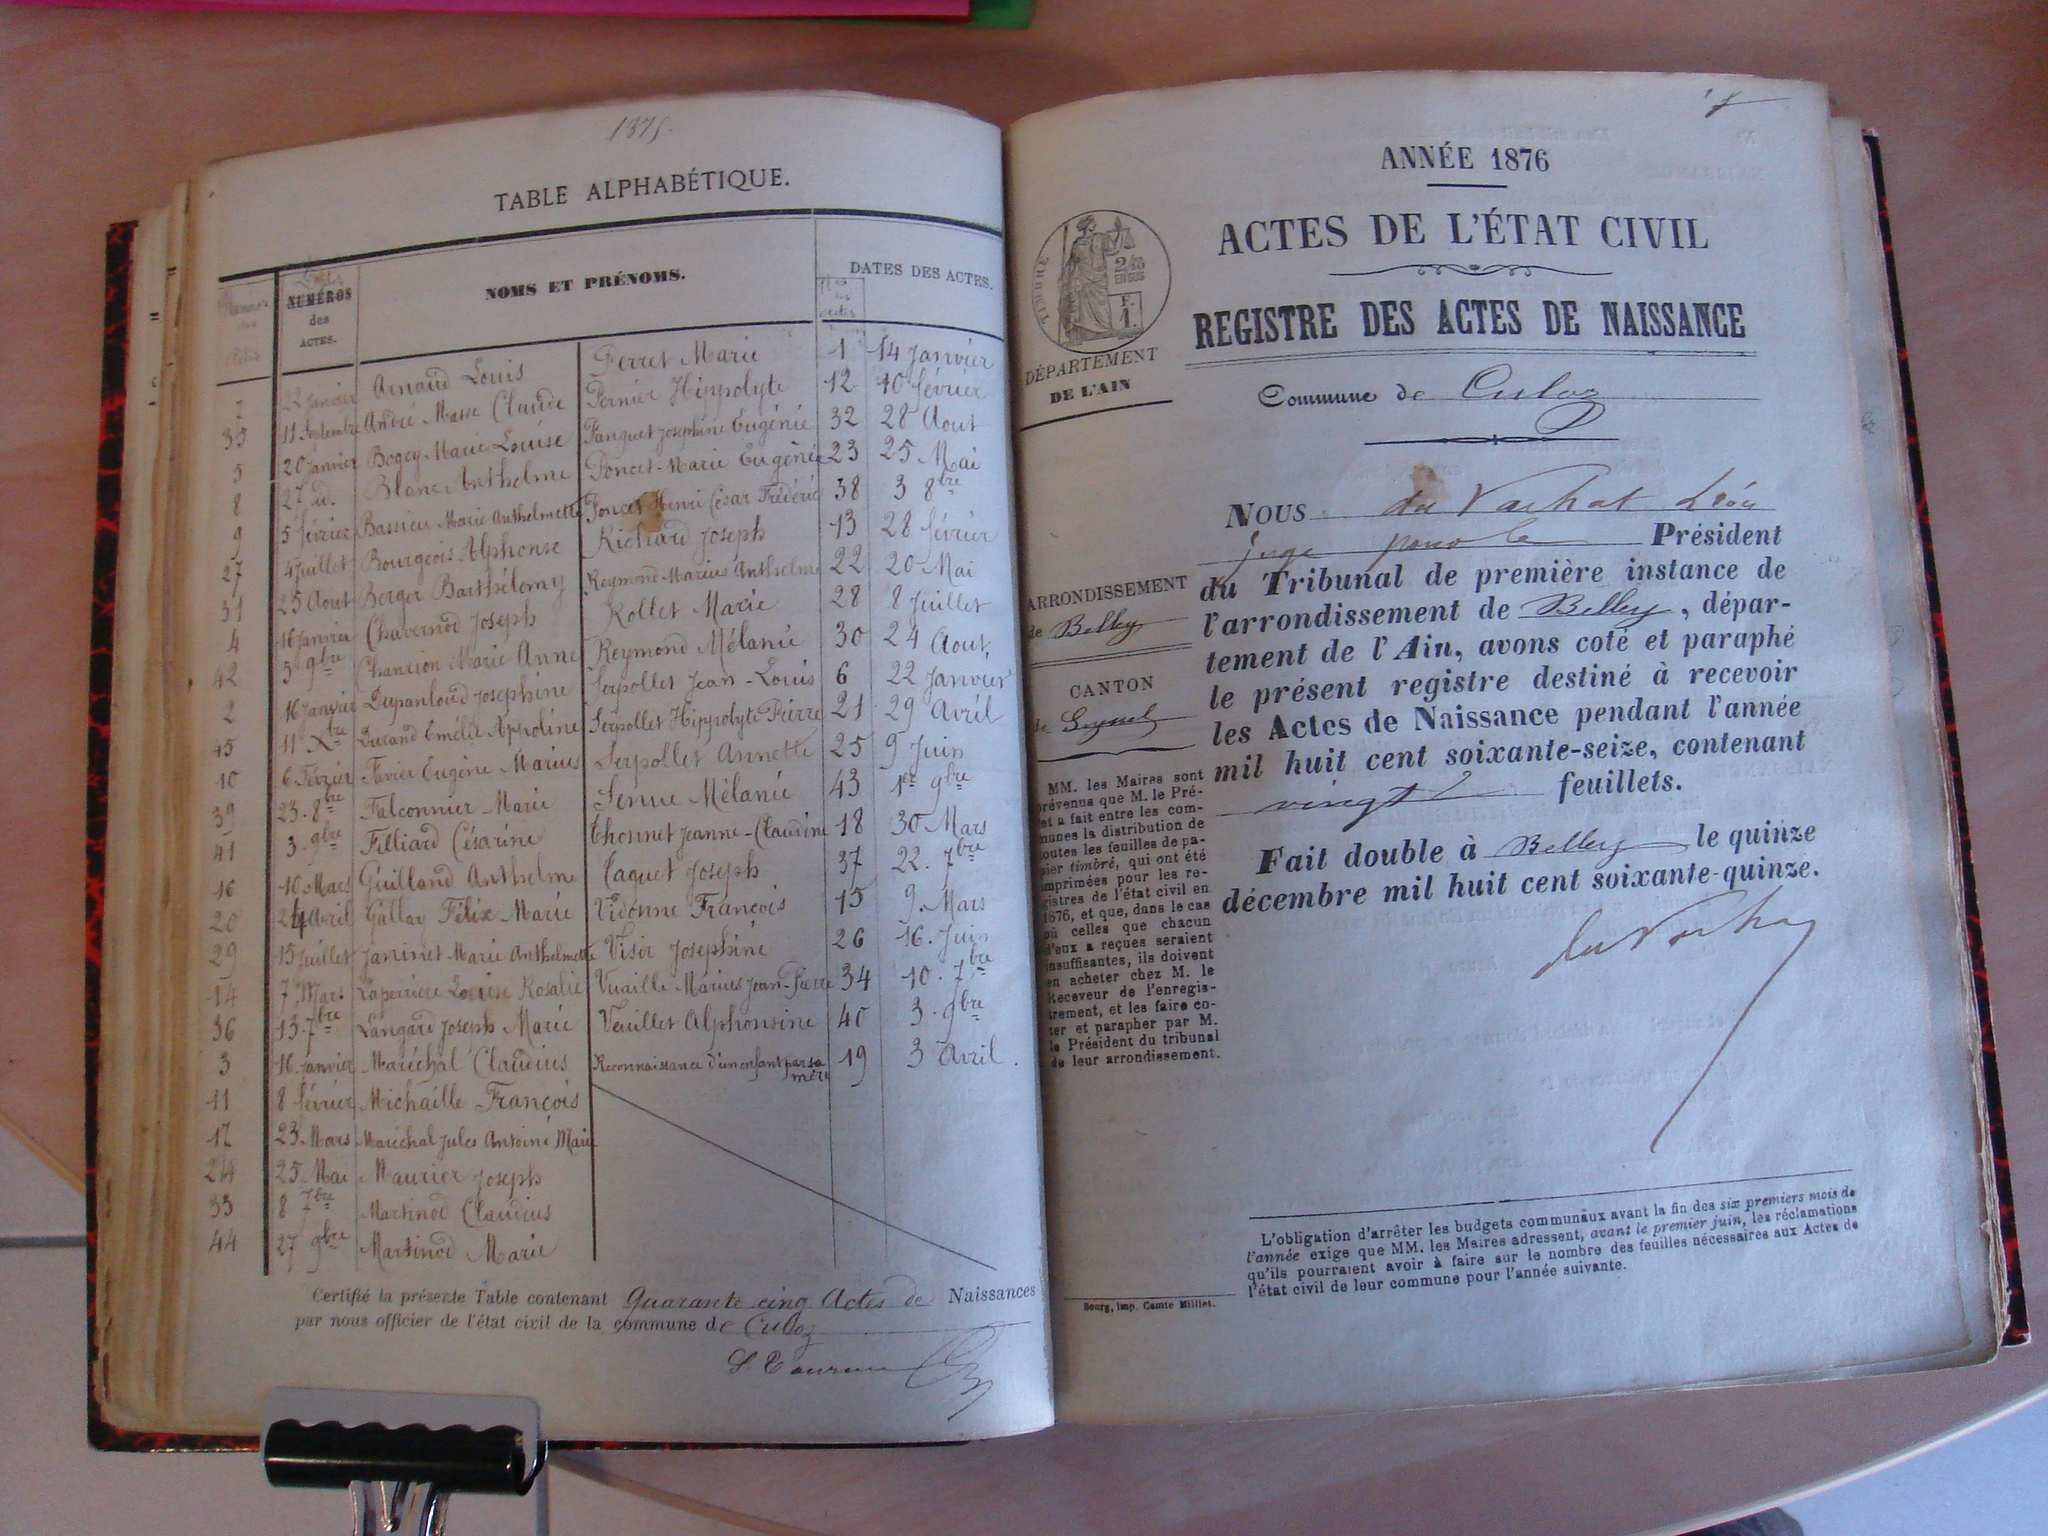 1875.
TABLE ALPHABÉTIQUE.
NUMÉROS des ACTES. NOMS ET PRÉNOMS. DATES DES ACTES.
22 Janvier Arnaud Louis Ferret Marie 1 14 Janvier
35 11 Septembre André-Masse Claude Pernier Hippolyte 12 10 février
5 20 Janvier Bogey Marie Louise Panguet Josephine Eugénie 32 28 Aout
8 27 id. Blanc Anthelme Poncet-Marie Eugénie 23 25 Mai
9 5 février Bassieu Marie Anthelmette Poncet Henri César Frédéric 38 3 8bre
27 4 Juillet Bourgeois Alphonse Richard Joseph 13 28 février
31 25 Aout Berger Barthélemy Reymond Marius Anthelme 22 20 Mai
4 16 Janvier Chavernod Joseph Rollet Marie 28 8 Juillet
42 5 9bre Chancion Marie Anne Reymond Mélanie 30 24 Aout
2 16 Janvier Dupanloud Josephine Serpollet Jean-Louis 6 22 Janvier
45 11 Xbre Durand Emélie Appoline Serpollet Hippolyte Pierre 21 29 Avril
10 6 Février Favier Eugène Marius Serpollet Annette 25 9 Juin
39 23. 8bre Falconnier Marie Serme Mélanie 43 1er 9bre
41 3. 9bre Filliard Césarine Thonnet Jeanne-Claudine 18 30 Mars
16 10 Mars Guilland Anthelme Taquet Joseph 37 22. 7bre
20 24 Avril Gallay Félix Marie Vidonne François 15 9. Mars
29 15 Juillet Janinet Marie Anthelmette Visir Josephine 26 16. Juin
14 7 Mars Laperrière Louise Rosalie Vuaille Marius Jean-Pierre 34 10. 7bre
36 13. 7bre Langard Joseph Marie Veuillet Alphonsine 40 3. 9bre
3 16 Janvier Maréchal Claudius Reconnaissance d'un enfant par sa mère 19 3 Avril.
11 8 février Michaille François
17 23 Mars Maréchal Jules Antoine Marie
24 25 Mai Maurier Joseph
33 8 7bre Martinod Claudius
44 27 9bre Martinod Marie
Certifié la présente Table contenant Quarante cinq Actes de Naissances
par nous officier de l'état civil de la commune de Culoz
ANNÉE 1876
ACTES DE L'ÉTAT CIVIL
REGISTRE DES ACTES DE NAISSANCE
TIMBRE
2/10 EN SUS
F. 1.
DÉPARTEMENT
DE L'AIN
Commune de Culoz
ARRONDISSEMENT
de Belley
CANTON
de Seyssel
MM. les Maires sont
prévenus que M. le Pré-
fet a fait entre les com-
munes la distribution de
toutes les feuilles de pa-
pier timbré, qui ont été
imprimées pour les re-
gistres de l'état civil en
1876, et que, dans le cas
où celles que chacun
d'eux a reçues seraient
insuffisantes, ils doivent
en acheter chez M. le
Receveur de l'enregis-
trement, et les faire co-
ter et parapher par M.
le Président du tribunal
de leur arrondissement.
NOUS du Vachat Léon
juge pour le Président
du Tribunal de première instance de
l'arrondissement de Belley, dépar-
tement de l'Ain, avons coté et paraphé
le présent registre destiné à recevoir
les Actes de Naissance pendant l'année
mil huit cent soixante-seize, contenant
vingt feuillets.
Fait double à Belley le quinze
décembre mil huit cent soixante-quinze.
du Vachat
L'obligation d'arrêter les budgets communaux avant la fin des six premiers mois de
l'année exige que MM. les Maires adressent, avant le premier juin, les réclamations
qu'ils pourraient avoir à faire sur le nombre des feuilles nécessaires aux Actes de
l'état civil de leur commune pour l'année suivante.
Bourg, imp. Comte Milliet.